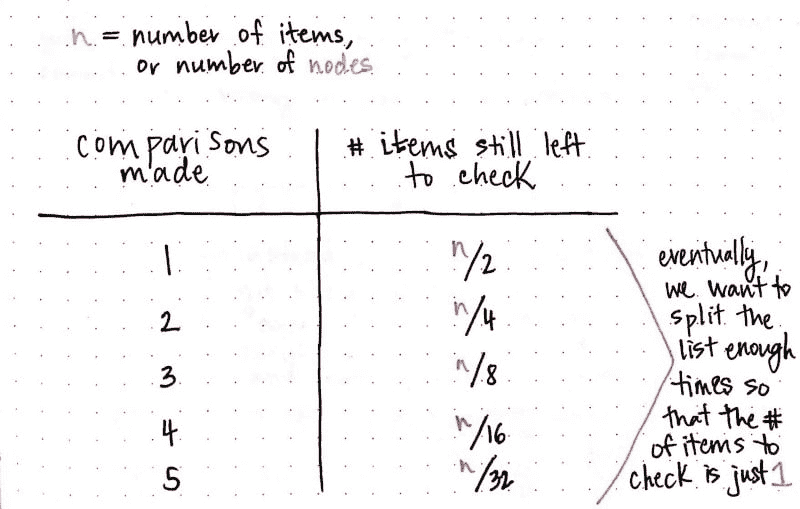 n = number of items,
or number of nodes
comparisons
made
# items still left
to check
1
n/2
2
n/4
3
n/8
4
n/16
5
n/32
eventually,
we want to
split the
list enough
times so
that the #
of items to
check is just 1